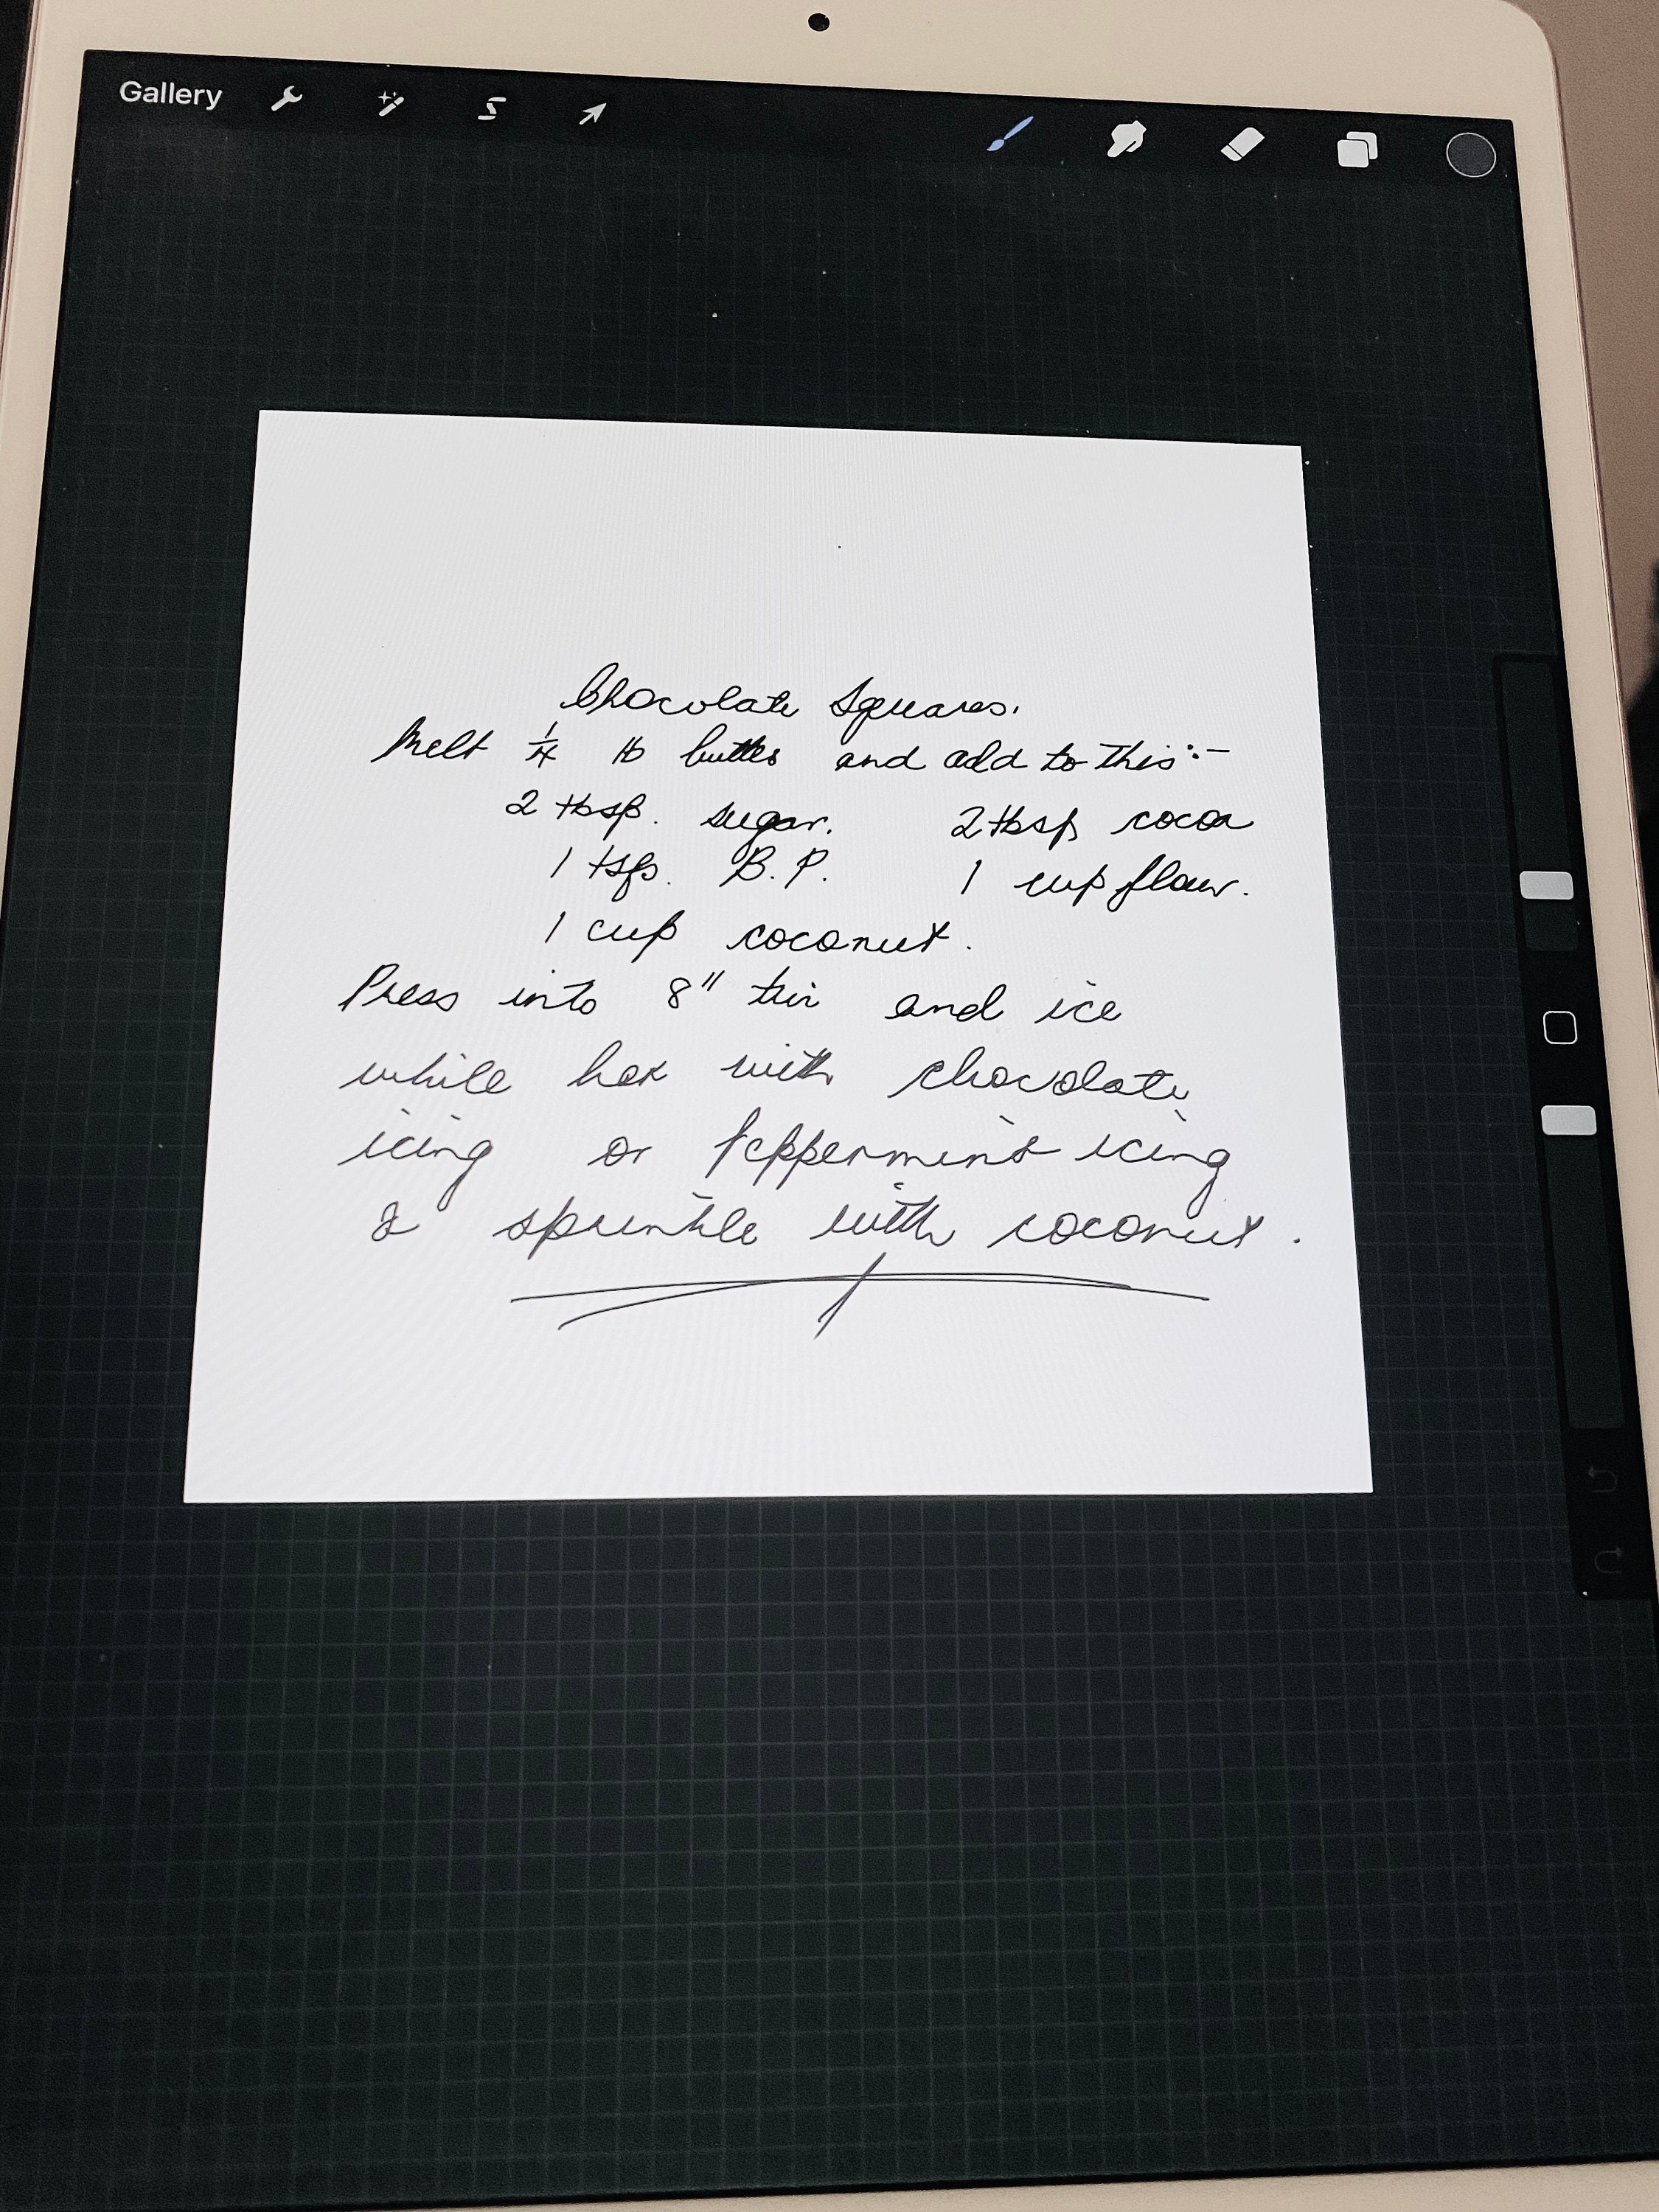 Gallery
Chocolate Squares.
Melt 1/4 lb butter and add to this:-
2 tbsp. sugar. 2 tbsp cocoa
1 tsp. B.P. 1 cup flour.
1 cup coconut.
Press into 8" tin and ice
while hot with chocolate
icing or Peppermint icing
& sprinkle with coconut.